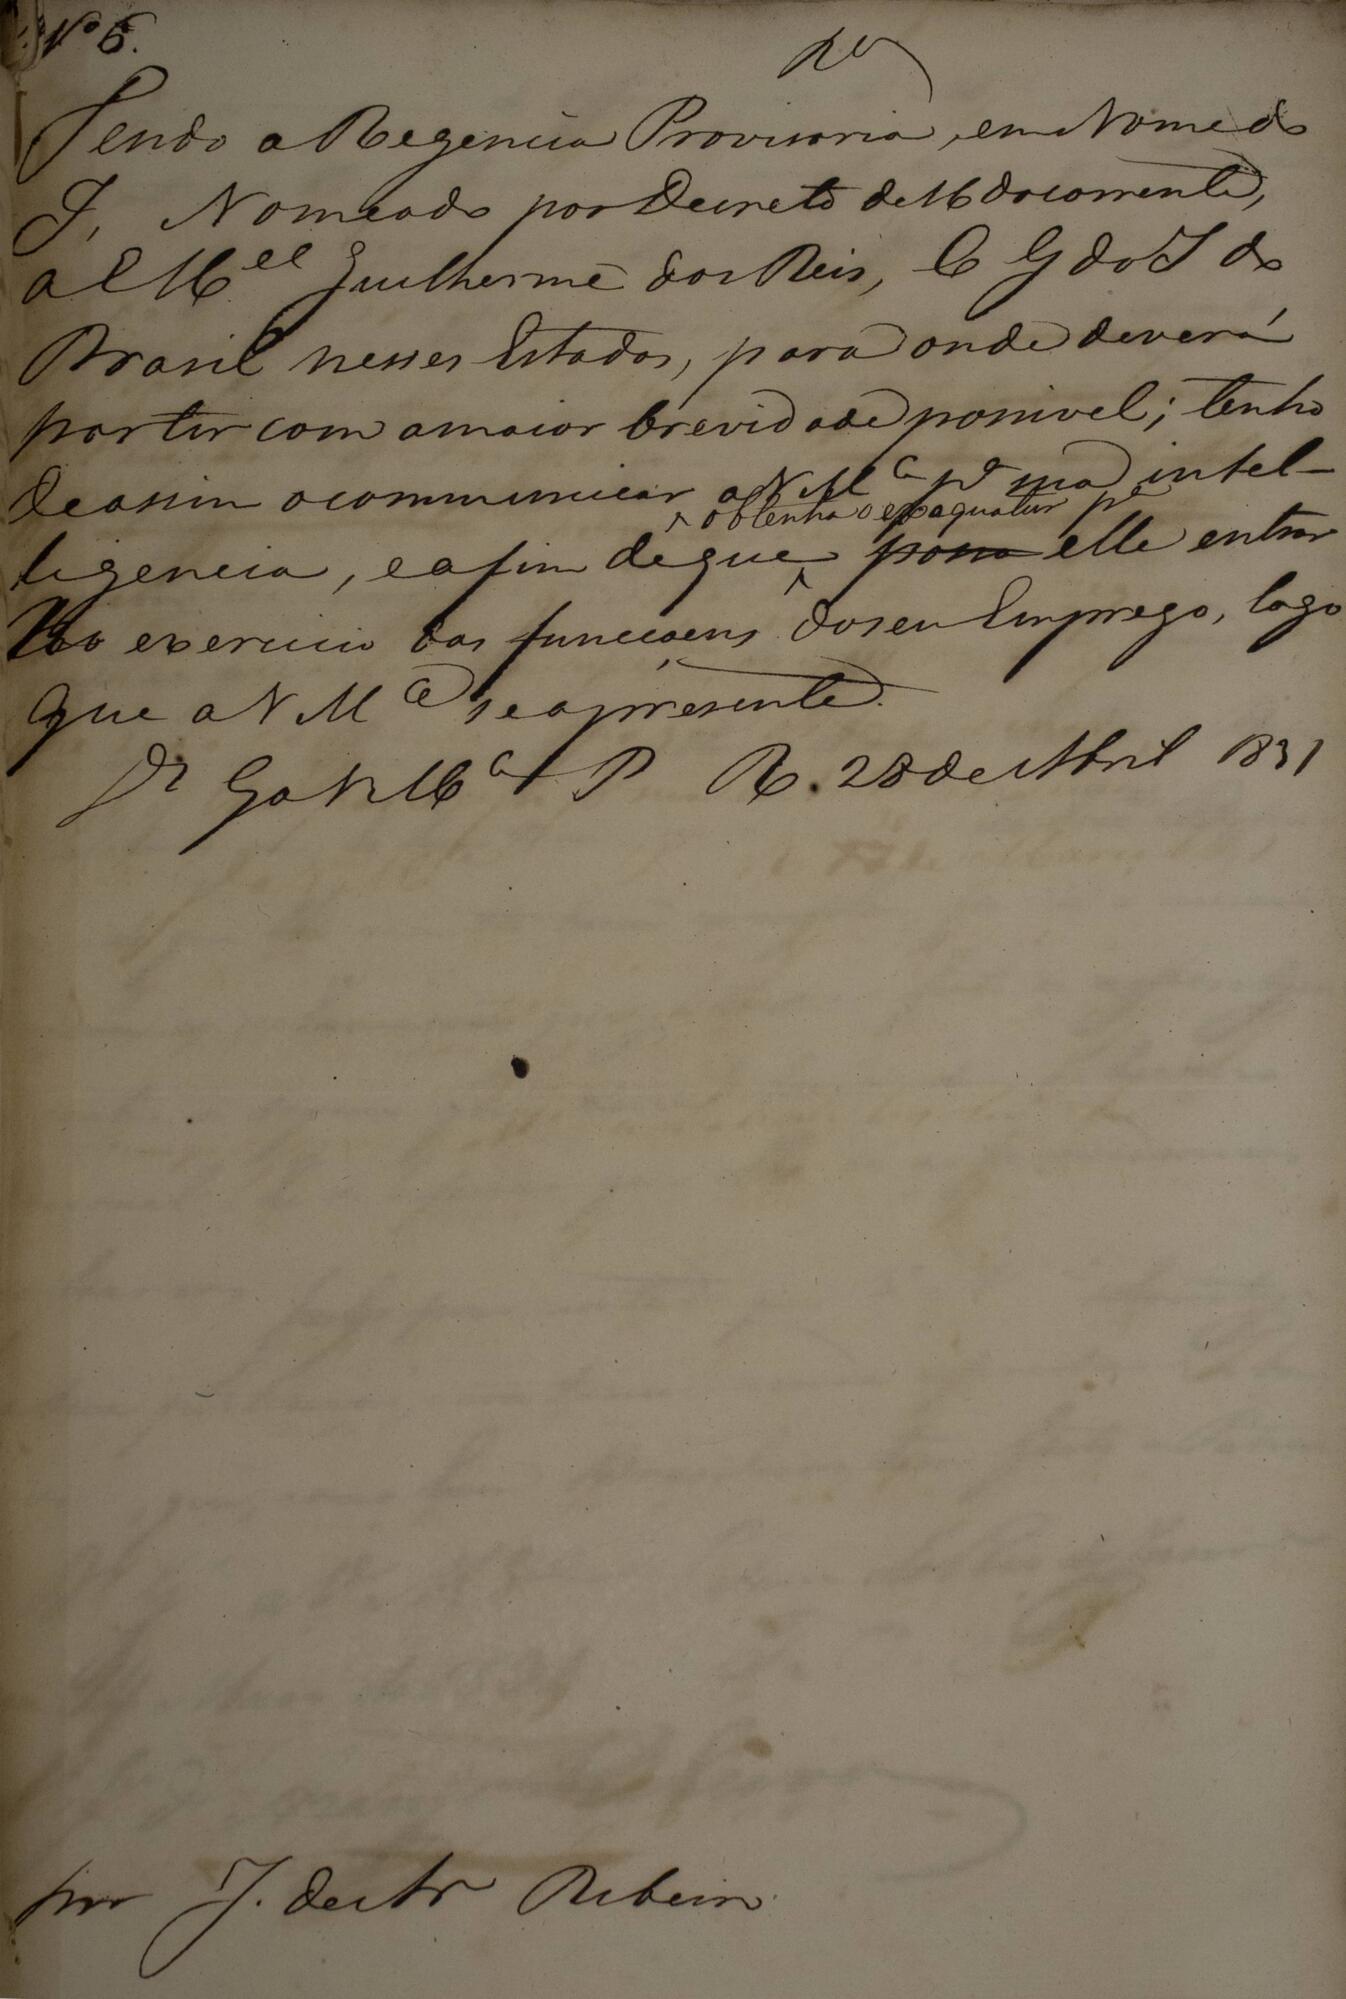 Nº 6.
Tendo a Regencia Provisoria, em Nome do
I, Nomeado por Decreto de 16 do corrente,
a E Mel Guilherme dos Reis, C G do I do
Brasil nesses Estados, para onde deverá
partir com a maior brevidade possivel; tenho
de assim o communicar a V Mce pª sua intel-
obtenha o exequatur pª
ligencia, e a fim de que possa elle entrar
no exercicio das funccoens do seu Emprego, logo
que a V Mce se apresente.
Ds Ge a V Mce P R. 28 de Abril 1831
por J. de Ar Ribeiro